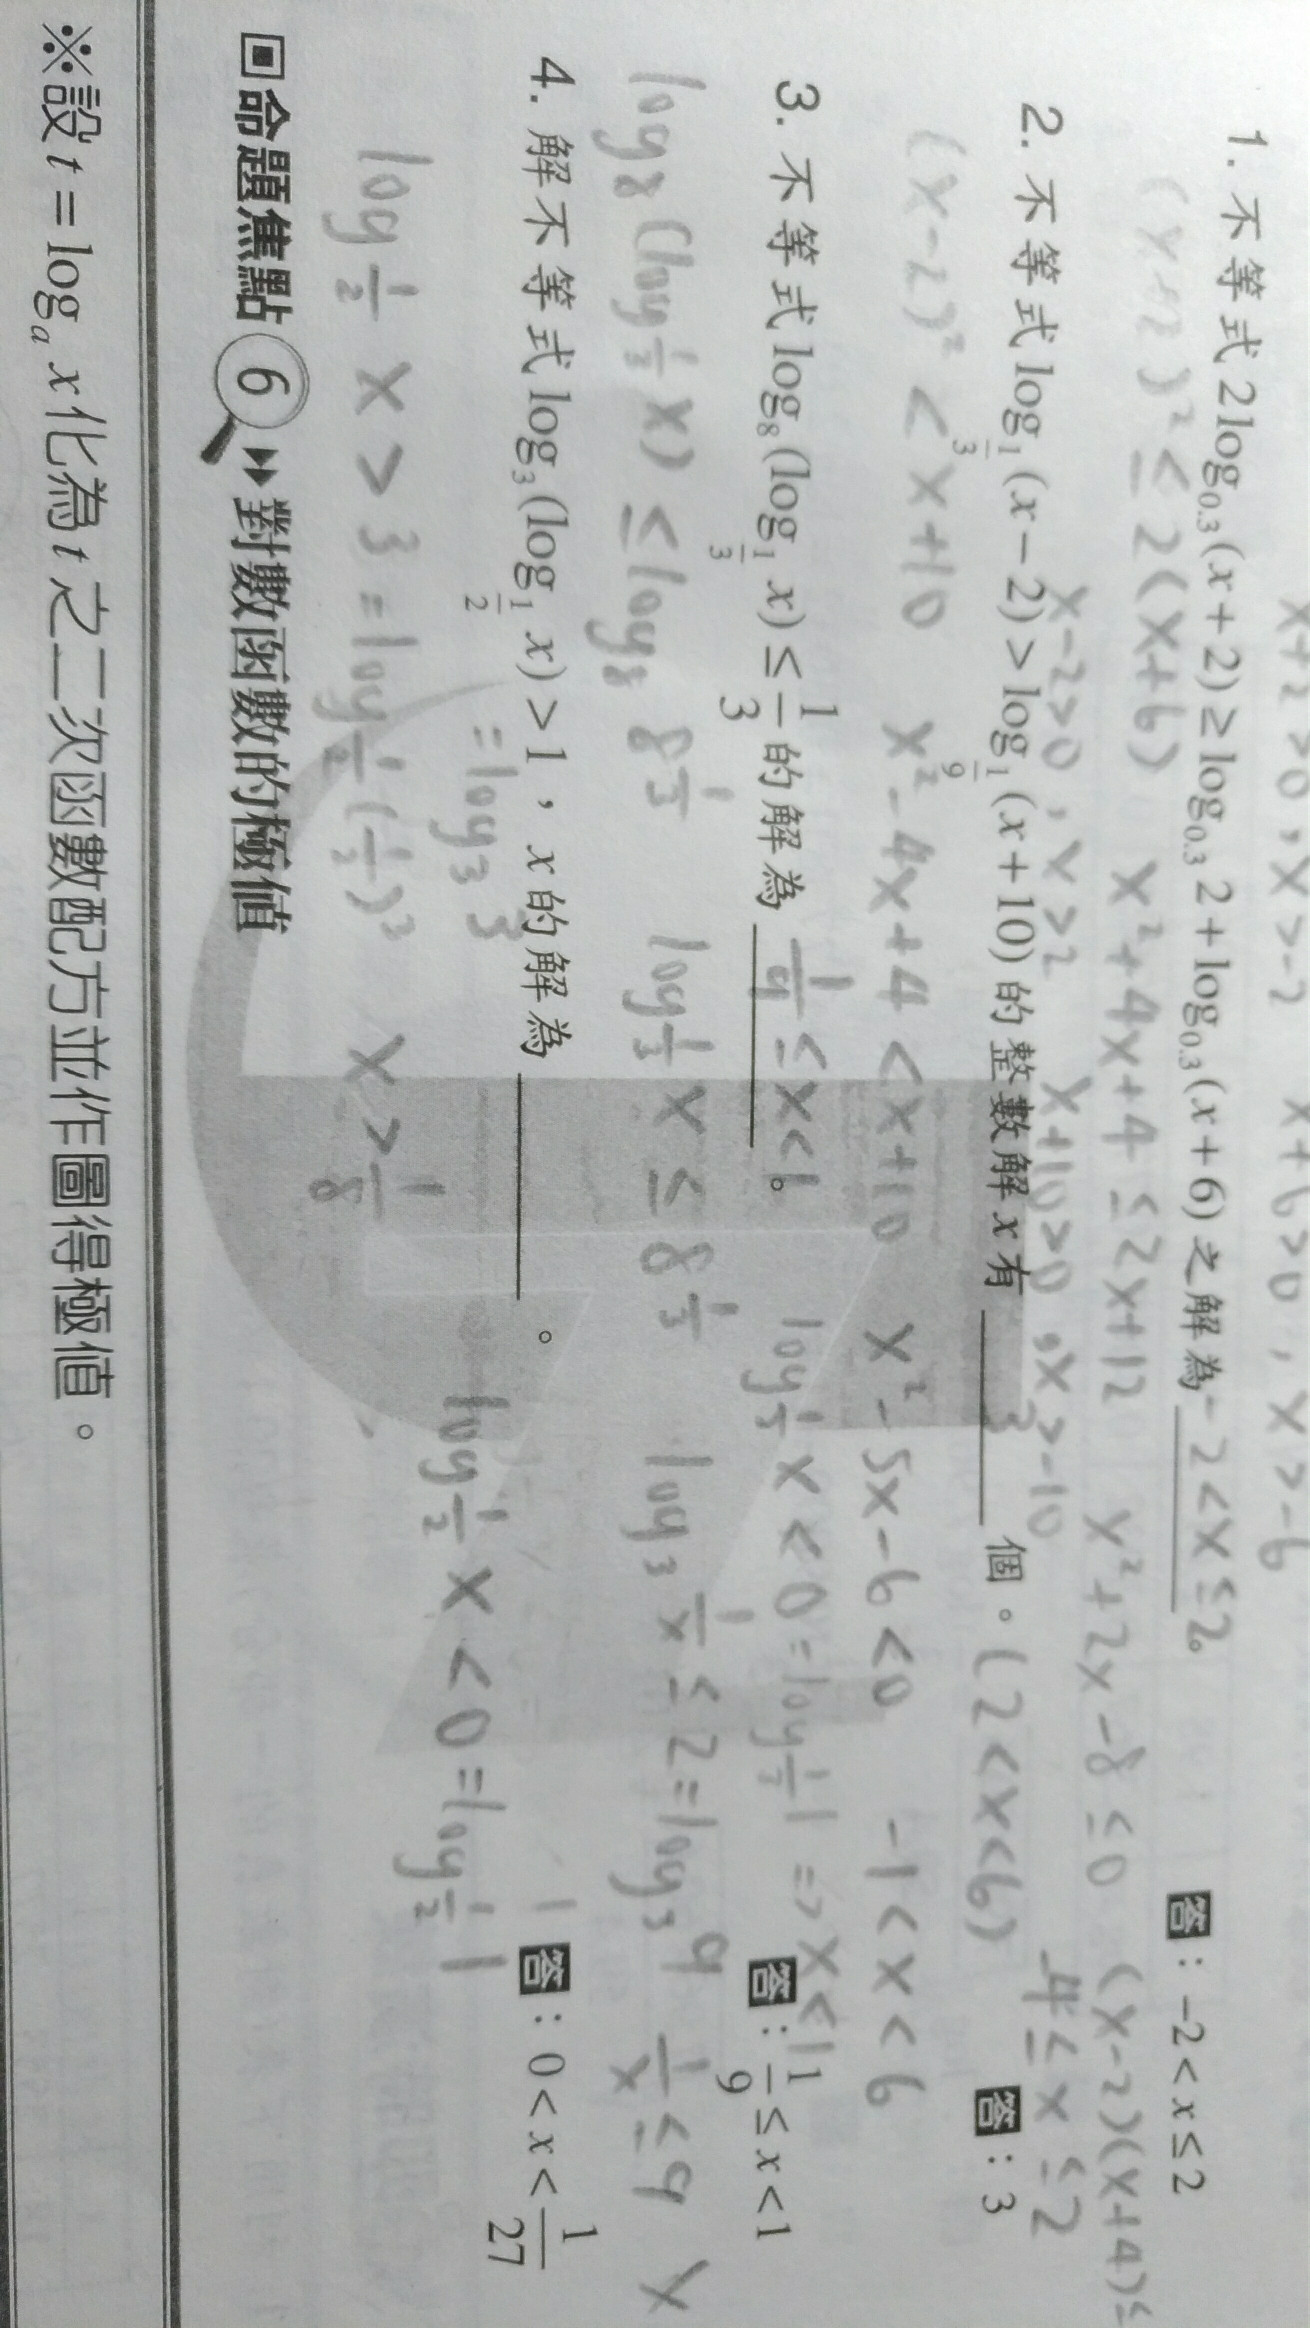 x+2>0,x>-2 x+6>0,x>-6
1. 不等式 2log₀.₃(x+2)≥log₀.₃ 2+log₀.₃(x+6) 之解為 -2<x≤2。
(x+2)² ≤ 2(x+6) x²+4x+4 ≤ 2x+12 x²+2x-8 ≤ 0 (x-2)(x+4)≤
答:-2<x≤2
-4≤x≤2
x-2>0,x>2 x+10>0,x>-10
2. 不等式 log_{1/3}(x-2)>log_{1/9}(x+10) 的整數解 x 有 3 個。(2<x<6)
答:3
(x-2)² < x+10 x²-4x+4 < x+10 x²-5x-6<0 -1<x<6
3. 不等式 log₈(log_{1/3} x)≤1/3 的解為 1/9≤x<1。
log_{1/3} x<0=log_{1/3} 1 => x<1
答:1/9≤x<1
log₈(log_{1/3} x) ≤ log₈ 8^{1/3} log_{1/3} x ≤ 8^{1/3} log₃ 1/x ≤ 2=log₃ 9 1/x≤9 x
4. 解不等式 log₃(log_{1/2} x)>1,x 的解為 。
=log₃ 3
答:0<x<1/27
log_{1/2} x<0=log_{1/2} 1
log_{1/2} x>3=log_{1/2}(1/2)³ x>1/8
命題焦點 6 對數函數的極值
※設 t=logₐ x 化為 t 之二次函數配方並作圖得極值。